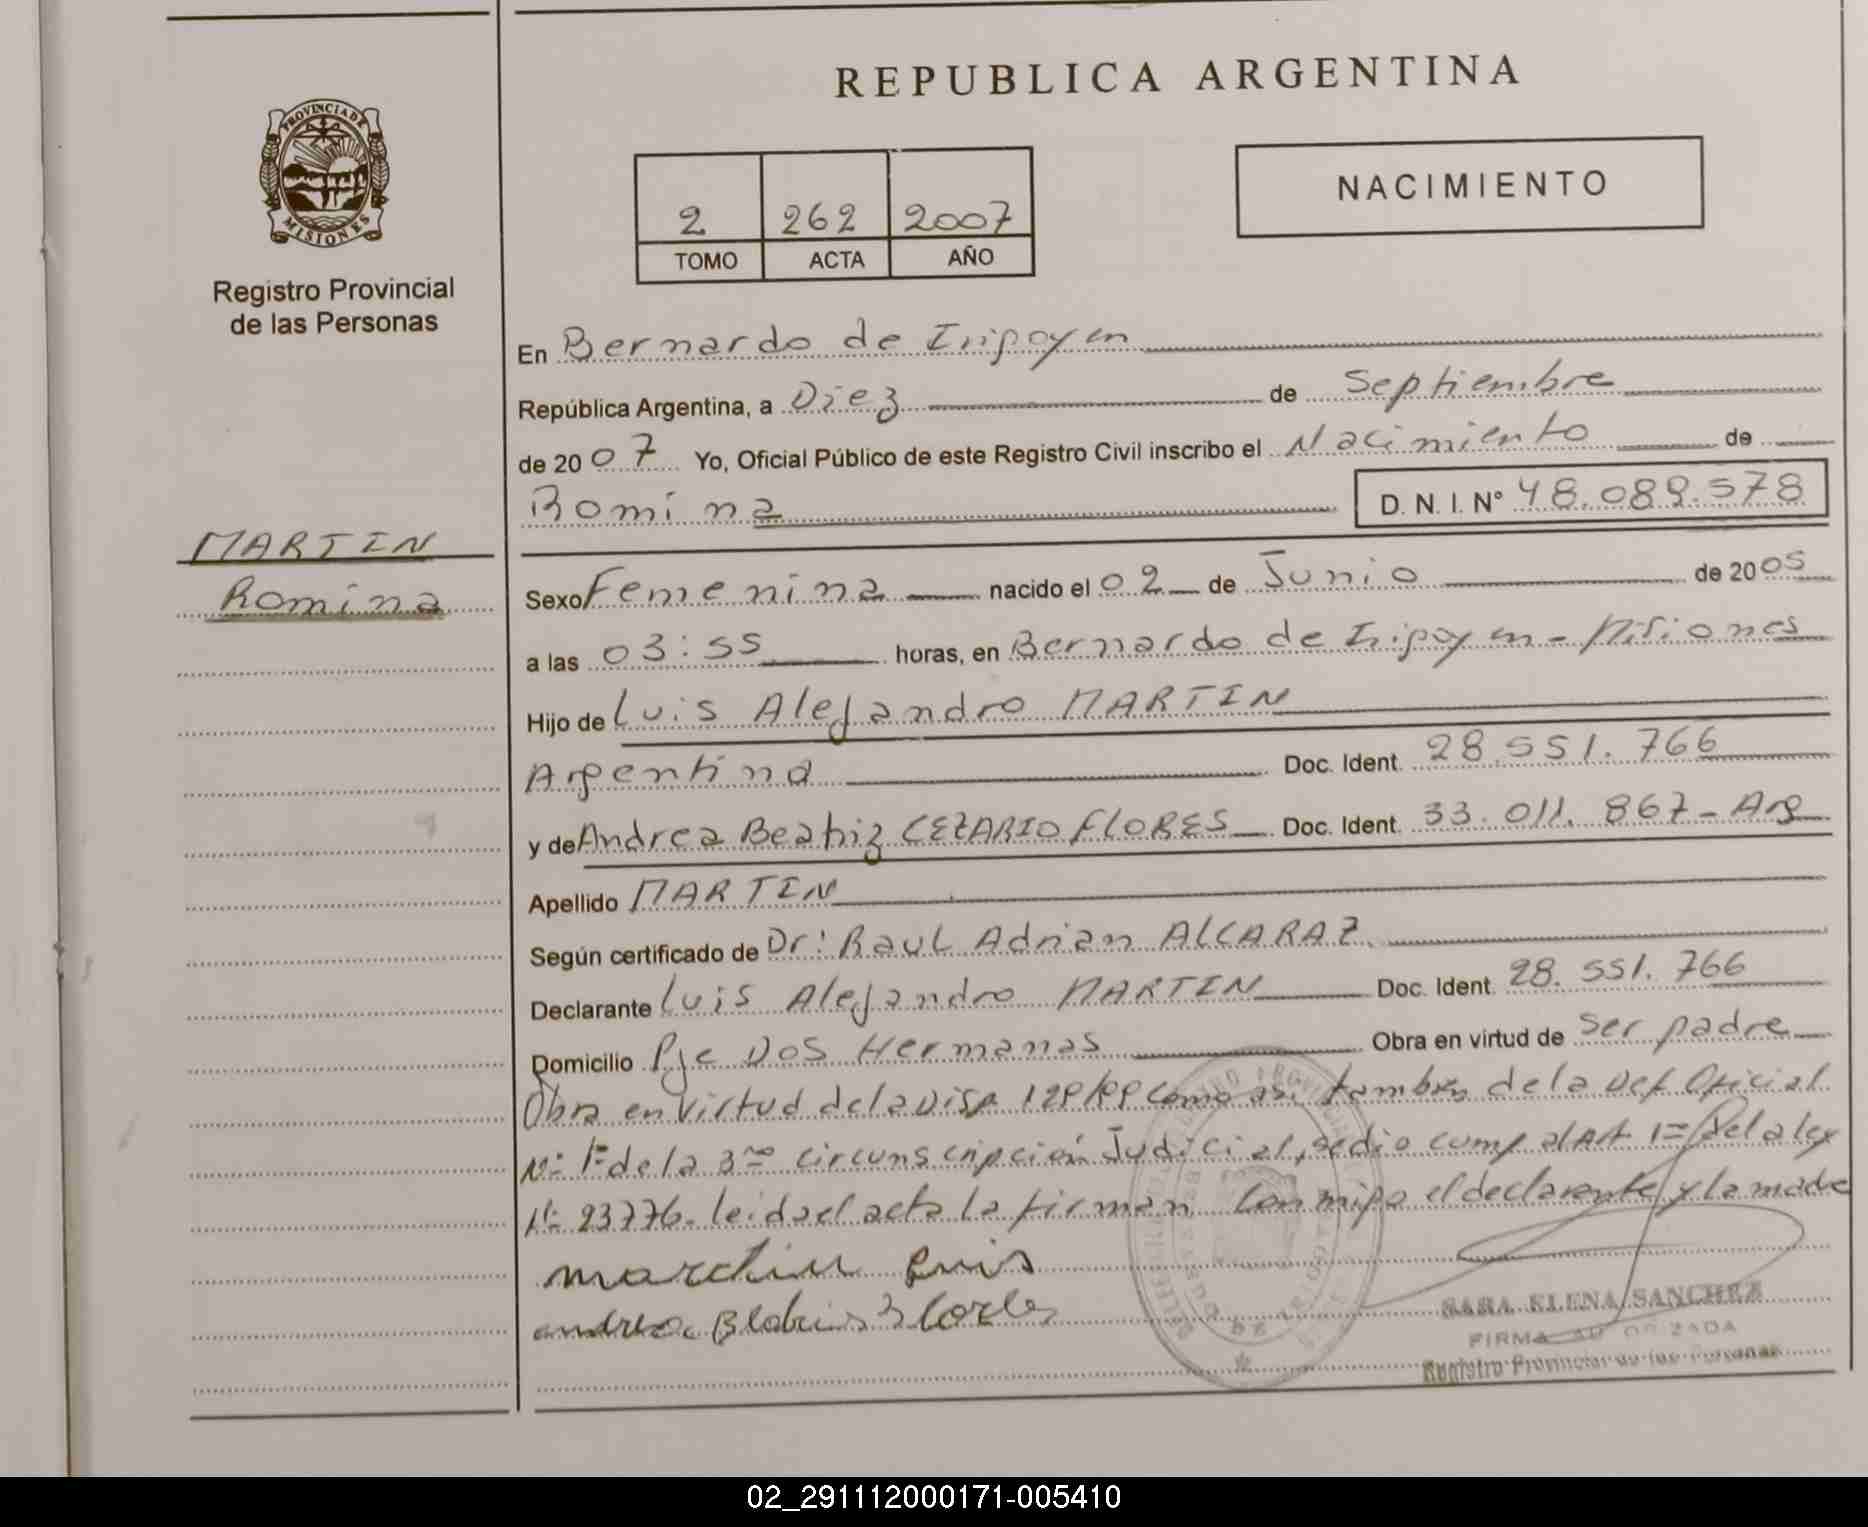 REPUBLICA ARGENTINA
PROVINCIA DE
MISIONES
Registro Provincial
de las Personas
2 262 2007
TOMO ACTA AÑO
NACIMIENTO
En Bernardo de Iripoyen
República Argentina, a Diez de Septiembre
de 2007 Yo, Oficial Público de este Registro Civil inscribo el Nacimiento de
Romina D. N. I. N° 48.089.578
MARTIN
Romina
Sexo Femenina nacido el 02 de Junio de 2005
a las 03:55 horas, en Bernardo de Iripoyen - Misiones
Hijo de Luis Alejandro MARTIN
Argentina Doc. Ident. 28.551.766
y de Andrea Beatriz CEZARIO FLORES Doc. Ident. 33.011.867 - Arg
Apellido MARTIN
Según certificado de Dr: Raul Adrian ALCARAZ
Declarante Luis Alejandro MARTIN Doc. Ident. 28.551.766
Domicilio Pje Dos Hermanas Obra en virtud de ser padre
Obra en virtud de la como asi tambien de la Def. Oficial
N° 1 de la 3ra circunscripción Judicial, se dio cump al Art 1° de la ley
N° 23776. leida el acta la firman conmigo el declarante y la madre
martin luis
andrea
SARA ELENA SANCHEZ
FIRMA AUTORIZADA
Registro Provincial de las Personas
02_291112000171-005410